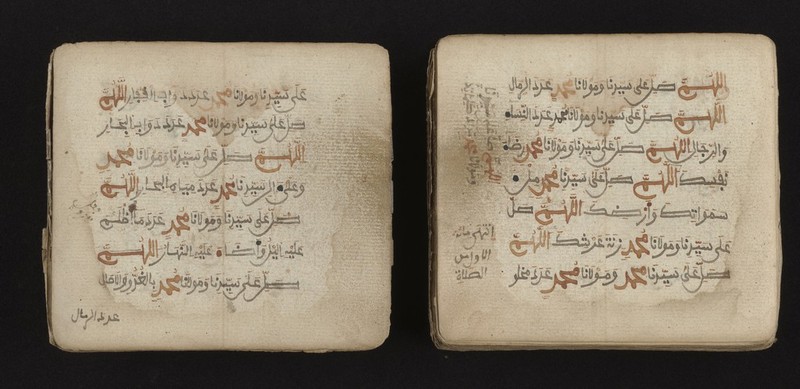 على سيدنا ومولانا محمد عدد دواب القفار اللهم
صل على سيدنا ومولانا محمد عدد دواب البحار
اللهم صل على سيدنا ومولانا محمد
وعلى ال سيدنا محمد عدد مياه البحار اللهم
صل على سيدنا ومولانا محمد عدد ما اظلم
عليه اليل واضاء عليه النهار اللهم
صل على سيدنا ومولانا محمد بالغدو والاصال
عدد الرمال
اللهم صل على سيدنا ومولانا محمد عدد الرمال
اللهم صل على سيدنا ومولانا محمد عدد النساء
والرجال اللهم صل على سيدنا ومولانا محمد رضاء
نفسك اللهم صل على سيدنا محمد ملء
سمواتك وارضك اللهم صل
على سيدنا ومولانا محمد زنة عرشك اللهم
صل على سيدنا محمد ومولانا محمد عدد مخلو
انتهى مائة
الصلاة